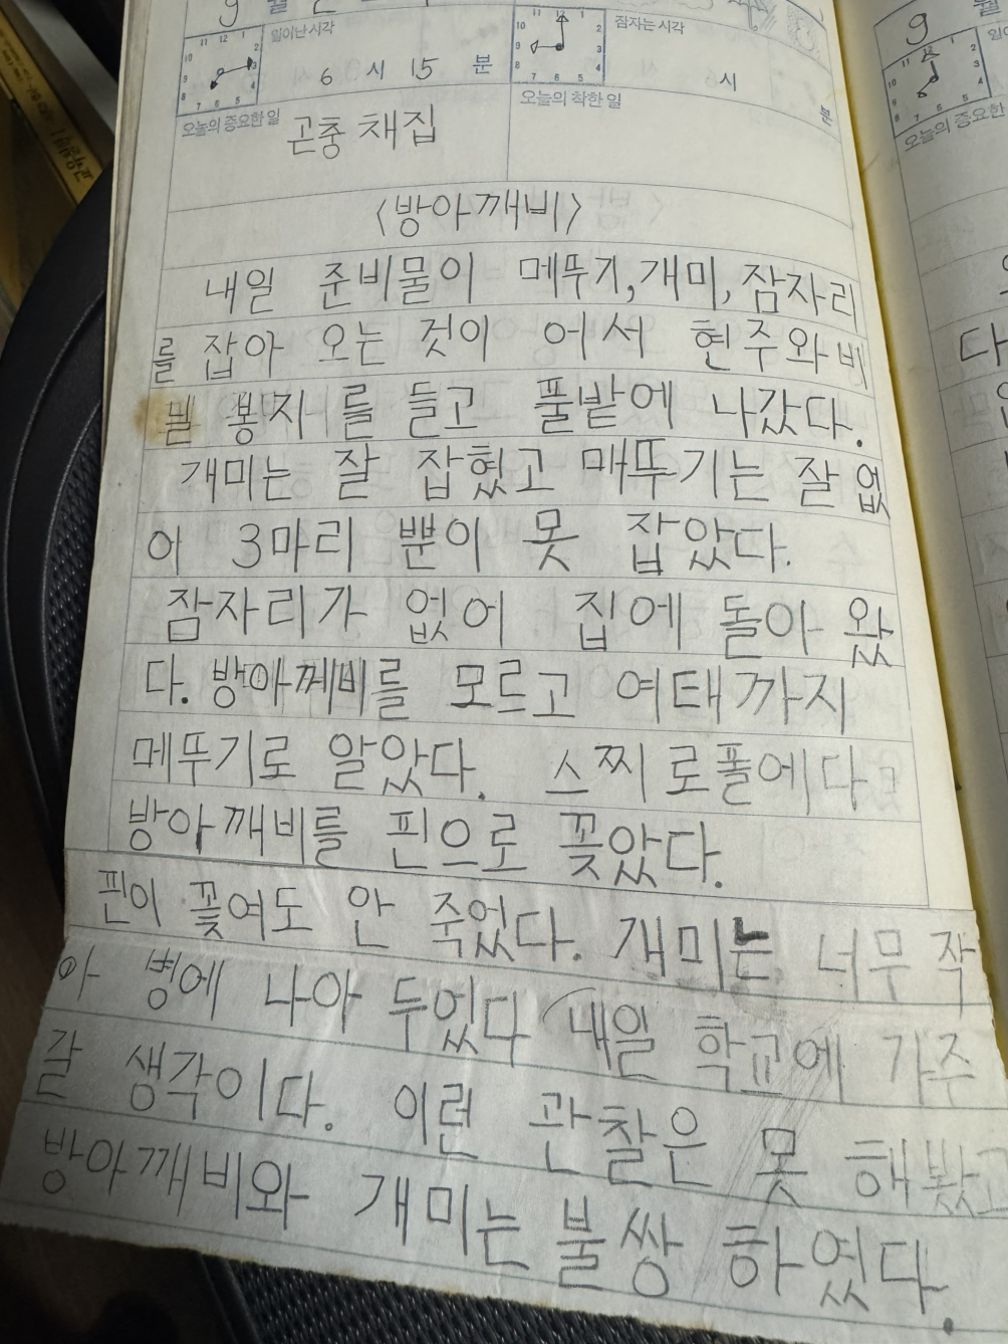 9 월
일어난 시각
6 시 15 분
잠자는 시각
시 분
오늘의 중요한 일
곤충 채집
오늘의 착한 일
〈방아깨비〉
내일 준비물이 메뚜기,개미,잠자리
를 잡아 오는 것이 어서 현주와 비
빌 봉지를 들고 풀밭에 나갔다.
개미는 잘 잡혔고 매뚜기는 잘 없
어 3마리 뿐이 못 잡았다.
잠자리가 없어 집에 돌아 왔
다. 방아께비를 모르고 여태까지
메뚜기로 알았다. 스찌로폴에다
방아깨비를 핀으로 꽂았다.
핀이 꽃여도 안 죽었다. 개미는 너무 작
아 병에 나아 두었다 내일 학교에 가주
갈 생각이다. 이런 관찰은 못 해봤고
방아깨비와 개미는 불쌍 하였다.
9 월
오늘의 중요한
다